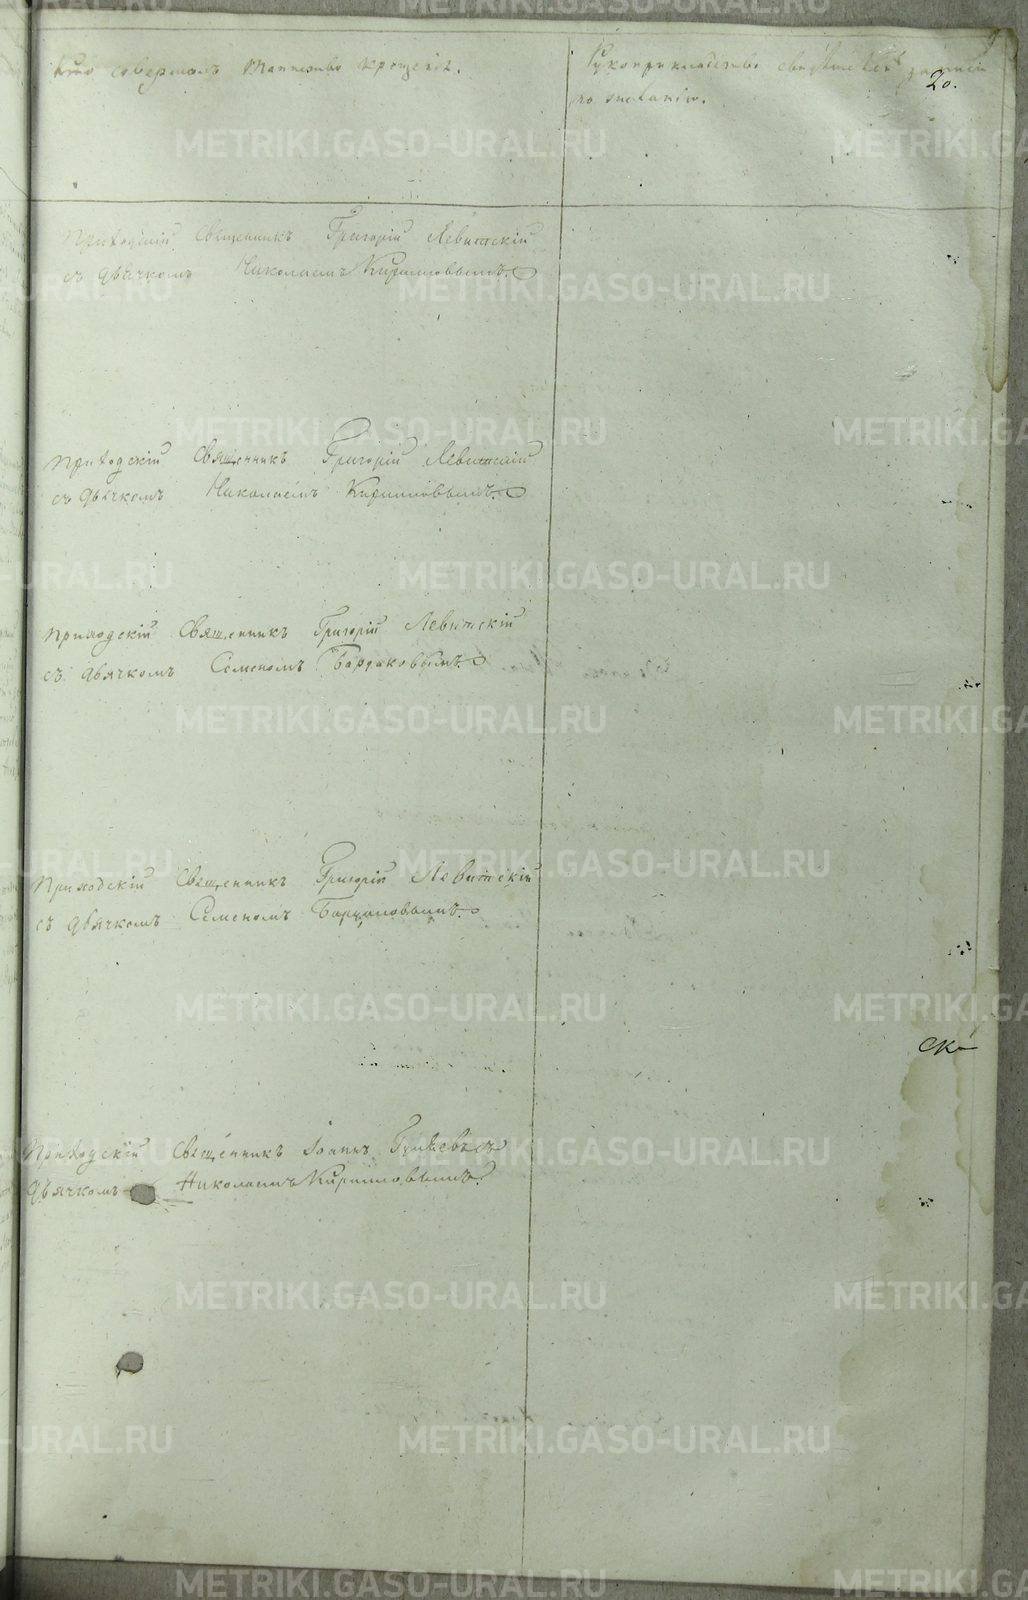 Кто совершалъ таинство крещенія.
Рукоприкладство свидѣтелей записи
по желанію.
20.
Приходскій Священникъ Григорій Левитскій
съ дьячкомъ Николаемъ Кирилловымъ.
Приходскій Священникъ Григорій Левитскій
съ дьячкомъ Николаемъ Кирилловымъ.
Приходскій Священникъ Григорій Левитскій
съ дьячкомъ Семеномъ
Приходскій Священникъ Григорій Левитскій
съ дьячкомъ Семеномъ
Приходскій Священникъ Іоаннъ съ
дьячкомъ Николаемъ Кирилловымъ.
METRIKI.GASO-URAL.RU